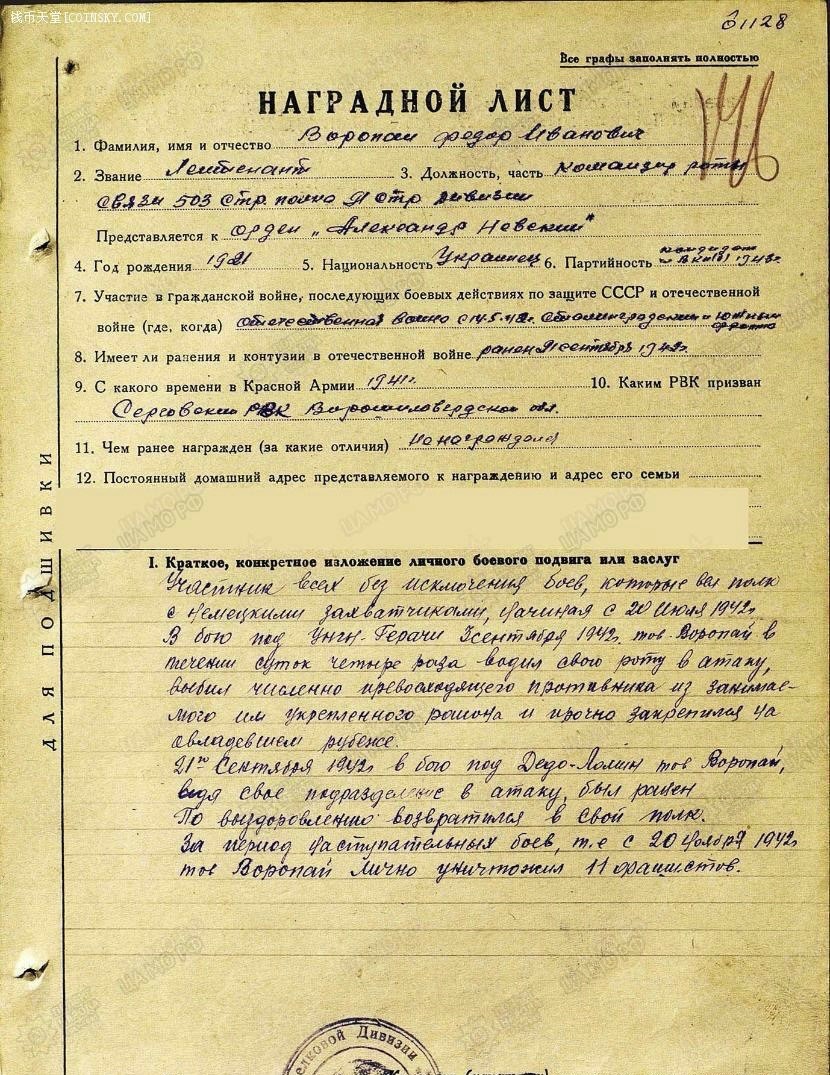 钱币天堂[COINSKY.COM]
31128
Все графы заполнять полностью
НАГРАДНОЙ ЛИСТ
1. Фамилия, имя и отчество Воропай Федор Иванович
2. Звание Лейтенант 3. Должность, часть командир роты
связи 503 стр полка 91 стр дивизии
Представляется к орден „Александр Невский"
4. Год рождения 1921 5. Национальность Украинец 6. Партийность кандидат
в ВКП(б) 1943г
7. Участие в гражданской войне, последующих боевых действиях по защите СССР и отечественной
войне (где, когда) отечественная война с 14.5.42г. Сталинградский и Южный
фронт
8. Имеет ли ранения и контузии в отечественной войне ранен 21 сентября 1942г
9. С какого времени в Красной Армии 1941г. 10. Каким РВК призван
РВК Ворошиловградской обл.
11. Чем ранее награжден (за какие отличия) не награждался
12. Постоянный домашний адрес представляемого к награждению и адрес его семьи
ДЛЯ ПОДШИВКИ
I. Краткое, конкретное изложение личного боевого подвига или заслуг
Участник всех без исключения боев, которые вел полк
с немецкими захватчиками, начиная с 20 Июля 1942г
В бою под Унгн-Герачи 3 сентября 1942г тов Воропай в
течении суток четыре раза водил свою роту в атаку,
выбил численно превосходящего противника из занимае-
мого им укрепленного района и прочно закрепился на
овладевшем рубеже.
21го Сентября 1942г в бою под Дедо-Ламин тов Воропай,
ведя свое подразделение в атаку, был ранен
По выздоровлению возвратился в свой полк.
За период наступательных боев, т.е с 20 ноября 1942г
тов Воропай лично уничтожил 11 фашистов.
елковой Дивизии
ЦАМО РФ